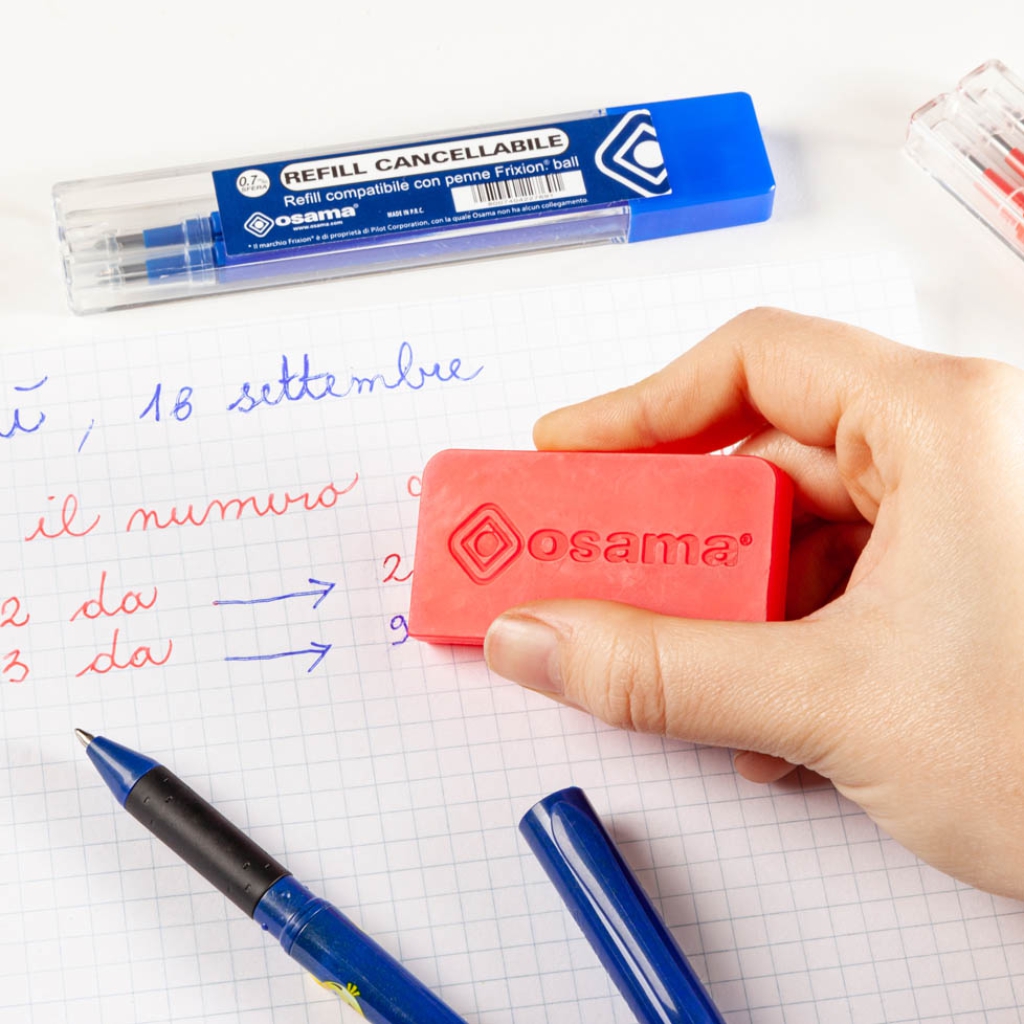 0.7
SFERA
REFILL CANCELLABILE
Refill compatibile con penne Frixion® ball
osama®
www.osama.com
MADE IN P.R.C.
* Il marchio Frixion® è di proprietà di Pilot Corporation, con la quale Osama non ha alcun collegamento.
, 16 settembre
il numero
osama®
2 da → 2
3 da → 9